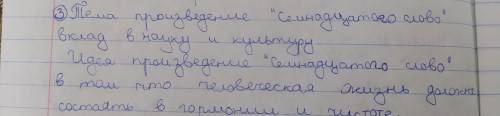 ③ Тема произведение "Семнадцатого слово"
вклад в науку и культуру
Идея произведение "Семнадцатого слово"
в том что человеческая жизнь должна
состоять в гормонии и чистоте.